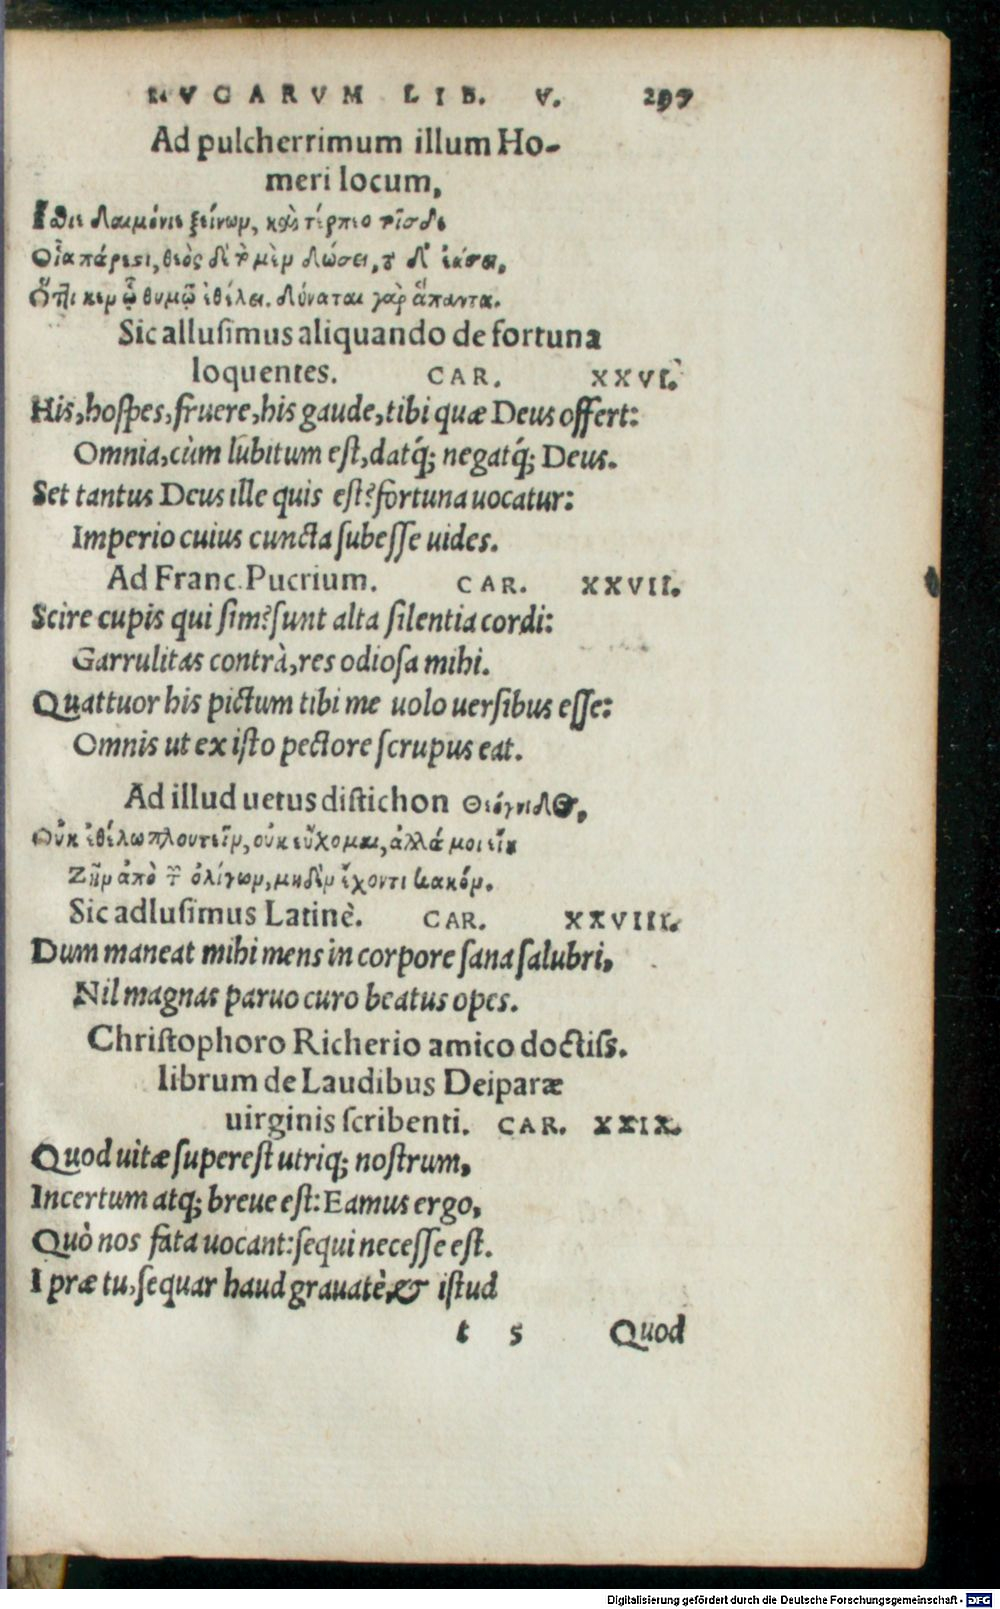 NVGARVM LIB. V. 297
Ad pulcherrimum illum Ho-
meri locum,
Ἔσθιε δαιμόνιε ξείνων, καὶ τέρπεο τοῖσδε
Οἷα πάρεσι, θεὸς δὲ τὸ μὲν δώσει, τὸ δ' ἐάσει,
Ὅττι κεν ᾧ θυμῷ ἐθέλει. δύναται γὰρ ἅπαντα.
Sic allusimus aliquando de fortuna
loquentes. CAR. XXVI.
His, hospes, fruere, his gaude, tibi quæ Deus offert:
Omnia, cùm lubitum est, datq́; negatq́; Deus.
Set tantus Deus ille quis est? fortuna uocatur:
Imperio cuius cuncta subesse uides.
Ad Franc. Pucrium. CAR. XXVII.
Scire cupis qui sim? sunt alta silentia cordi:
Garrulitas contrà, res odiosa mihi.
Quattuor his pictum tibi me uolo uersibus esse:
Omnis ut ex isto pectore scrupus eat.
Ad illud uetus distichon Θεόγνιδος,
Οὐκ ἐθέλω πλουτεῖν, οὐκ εὔχομαι, ἀλλά μοι εἴη
Ζῆν ἀπὸ τῶν ὀλίγων, μηδὲν ἔχοντι κακόν.
Sic adlusimus Latinè. CAR. XXVIII.
Dum maneat mihi mens in corpore sana salubri,
Nil magnas paruo curo beatus opes.
Christophoro Richerio amico doctiss.
librum de Laudibus Deiparæ
uirginis scribenti. CAR. XXIX.
Quod uitæ superest utriq; nostrum,
Incertum atq; breue est: Eamus ergo,
Quò nos fata uocant: sequi necesse est.
I præ tu, sequar haud grauatè, & istud
t 5 Quod
Digitalisierung gefördert durch die Deutsche Forschungsgemeinschaft - DFG